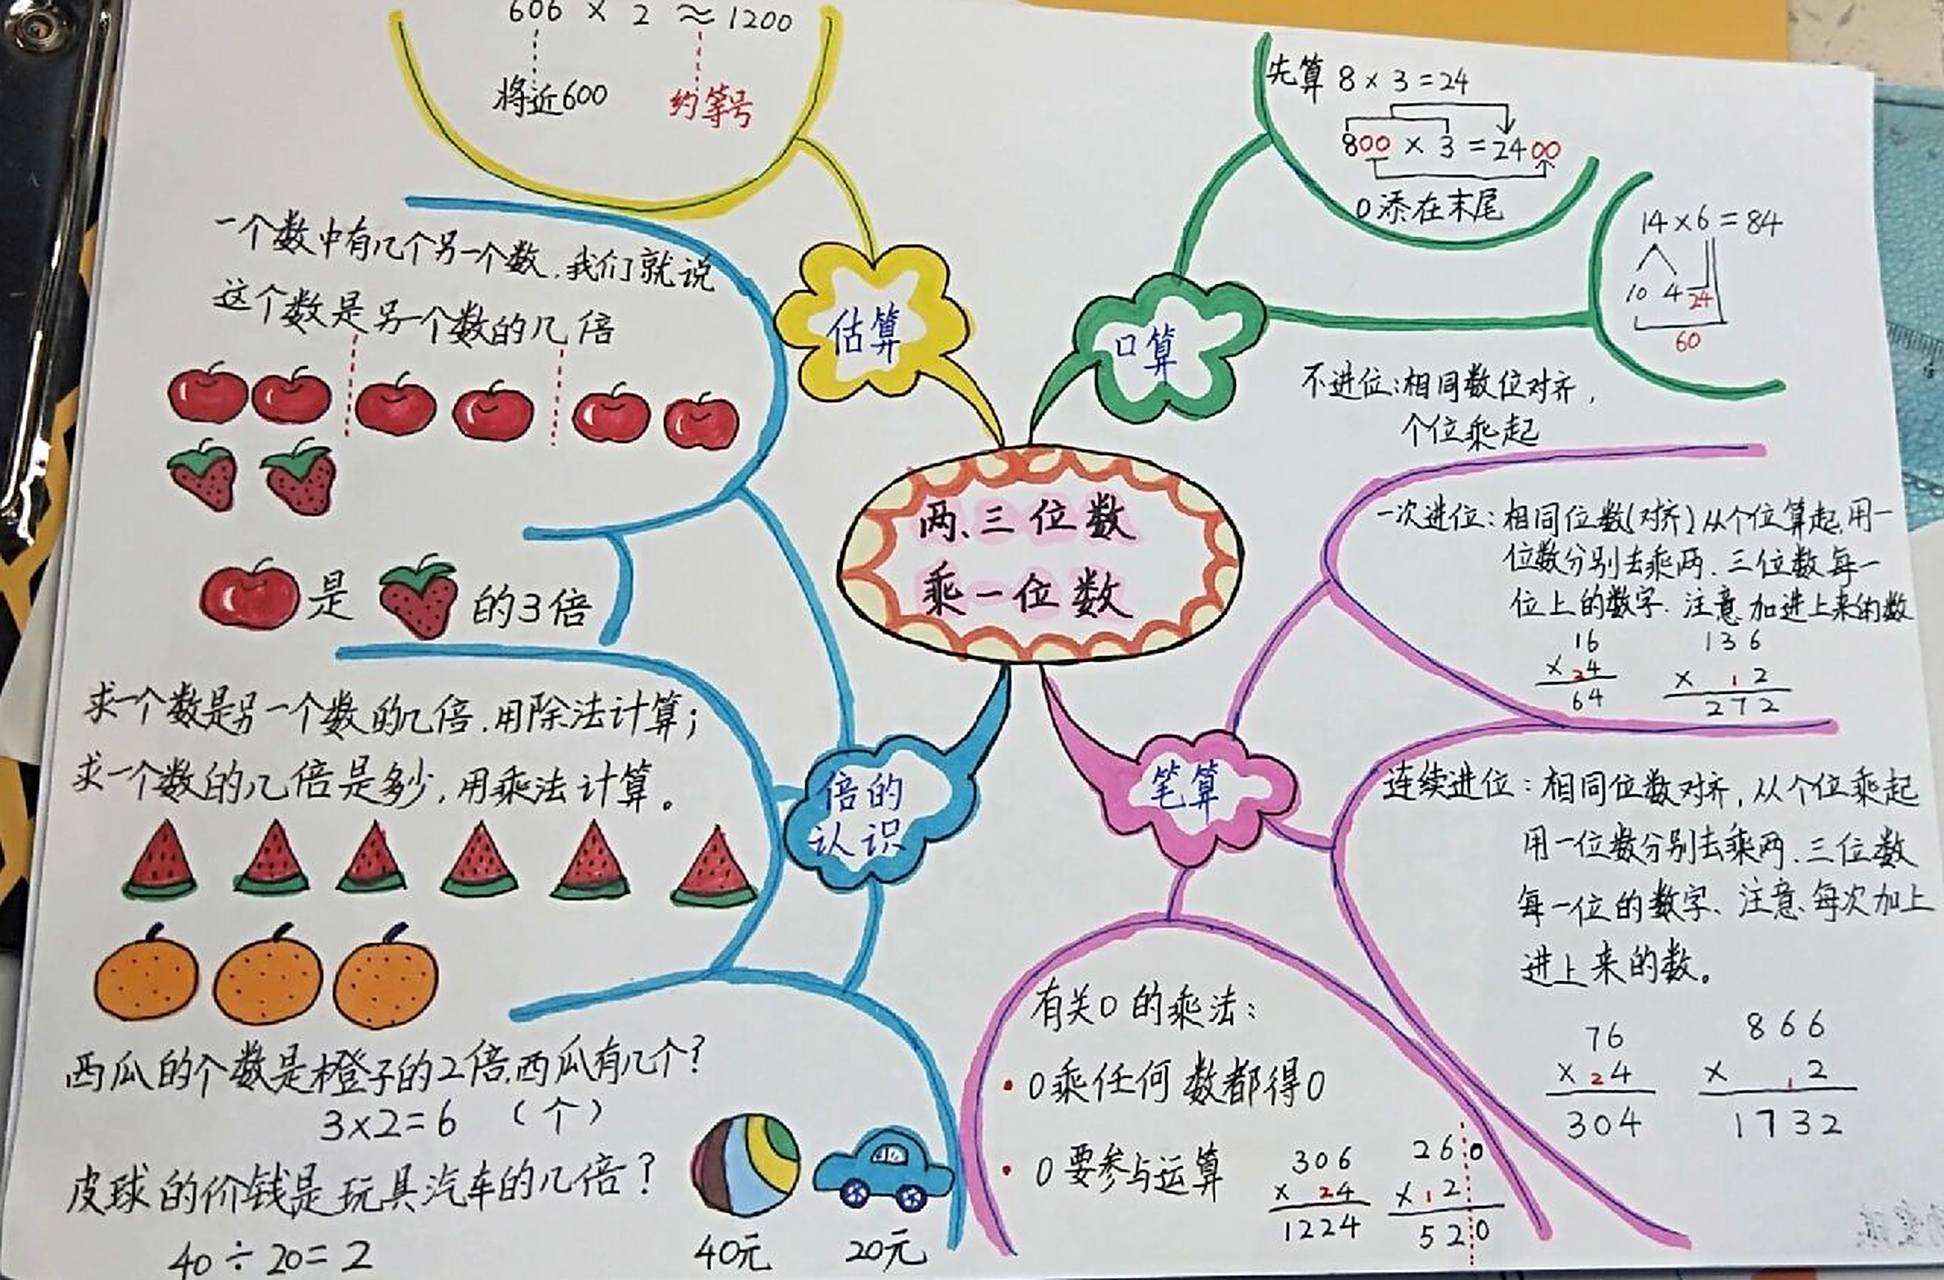 606 × 2 ≈ 1200
将近600
约等号
估算
先算 8×3=24
800 × 3 = 2400
0添在末尾
14×6=84
10 4 24
60
口算
两、三位数
乘一位数
一个数中有几个另一个数，我们就说
这个数是另一个数的几倍
是 的3倍
求一个数是另一个数的几倍，用除法计算；
求一个数的几倍是多少，用乘法计算。
倍的
认识
西瓜的个数是橙子的2倍，西瓜有几个？
3×2=6 （个）
皮球的价钱是玩具汽车的几倍？
40÷20=2
40元
20元
笔算
不进位：相同数位对齐，
个位乘起
一次进位：相同位数(对齐)从个位算起，用一
位数分别去乘两、三位数每一
位上的数字、注意加进上来的数
16
× 2 4
64
136
× 1 2
272
连续进位：相同位数对齐，从个位乘起
用一位数分别去乘两、三位数
每一位的数字、注意、每次加上
进上来的数。
76
× 2 4
304
866
× 1 2
1732
有关0的乘法：
·0乘任何数都得0
·0要参与运算
306
× 2 4
1224
260
× 1 2
520